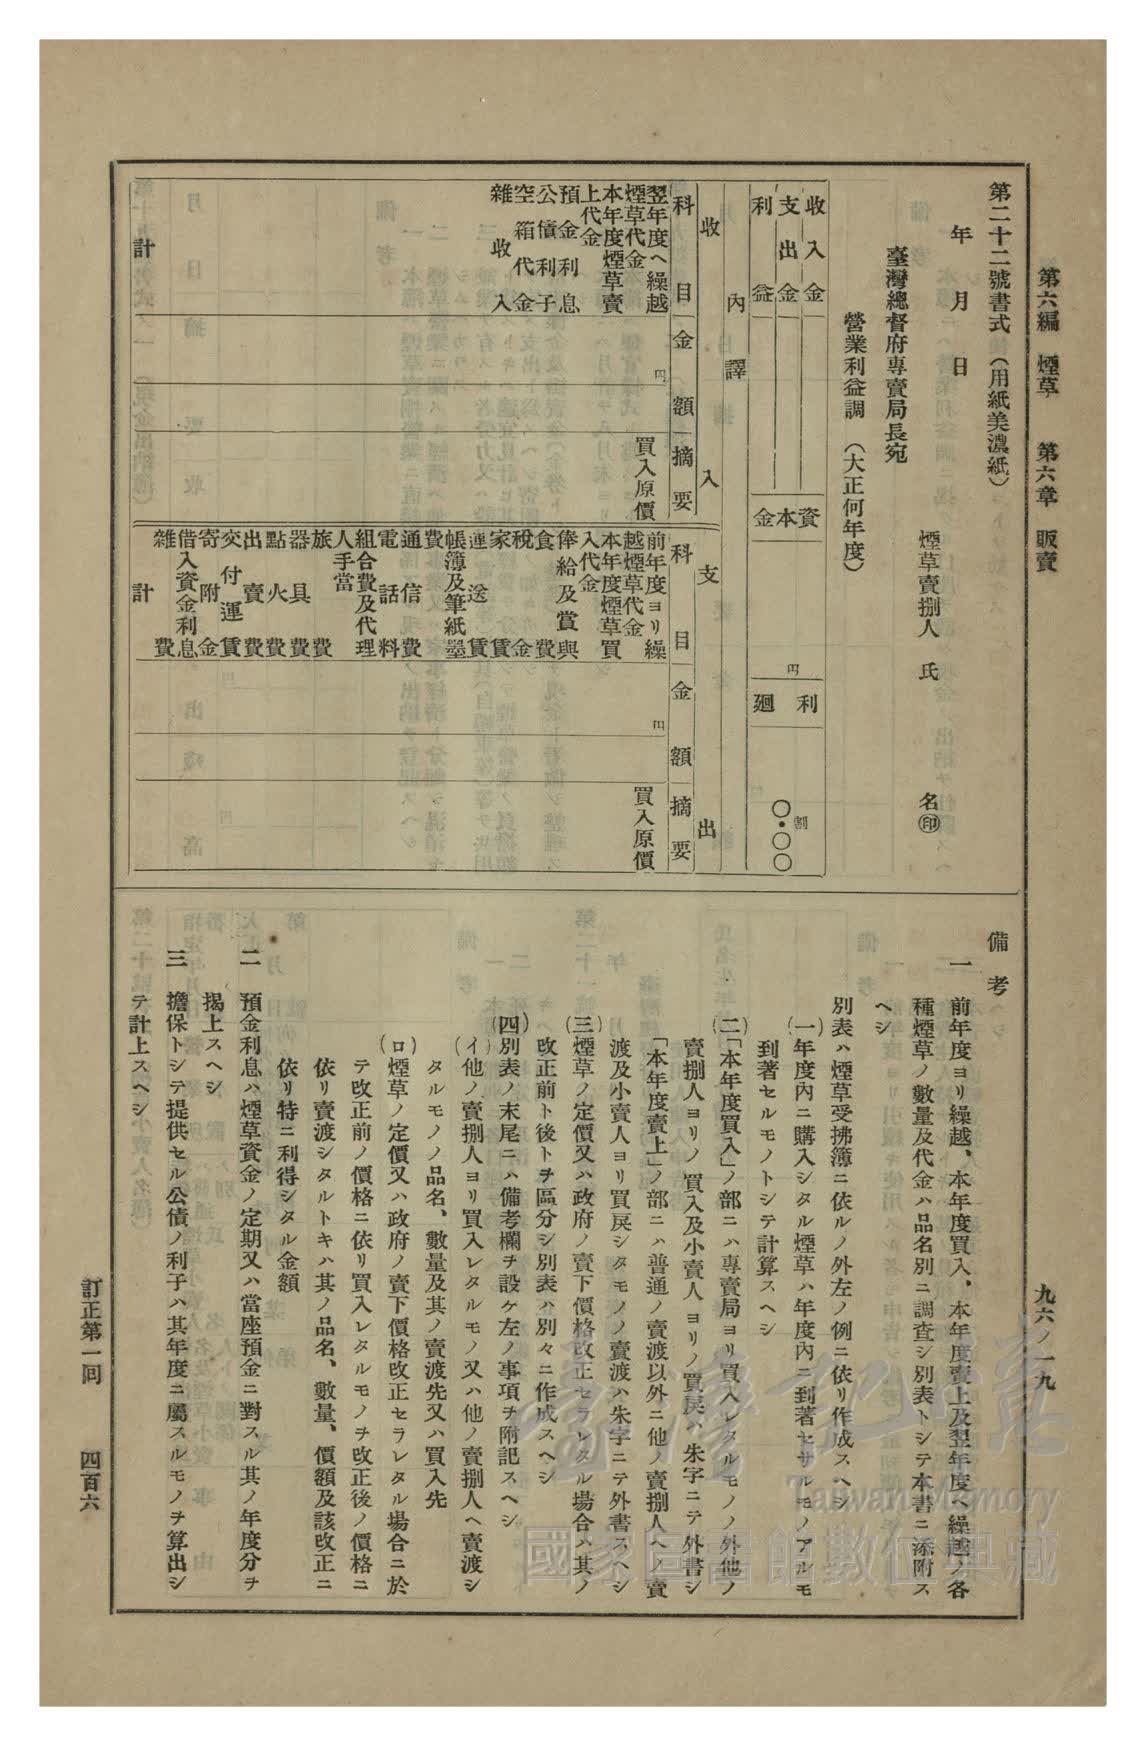 第六編　煙草　　第六章　販賣
九六ノ一九
第二十二號書式（用紙美濃紙）
年　月　日
煙草賣捌人　氏　　名㊞
臺灣總督府專賣局長宛
營業利益調　（大正何年度）
收入金
支出金
利益
資本金
円
利廻
割
〇・〇〇
內譯
收入
科目
金額
摘要
翌年度ヘ繰越
煙草代金
円
買入原價
本年度煙草賣
上代金
預金利息
公債利子
空箱代金
雜收入
計
支出
科目
金額
摘要
前年度ヨリ繰
越煙草代金
円
買入原價
本年度煙草買
入代金
俸給及賞與
食費
稅金
家賃
運送賃
帳簿及筆紙墨
費
通信費
電話料
組合費及代理
人手當
旅費
器具費
點火費
出賣費
交付運賃
寄附金
借入資金利息
雜費
計
備考
一　前年度ヨリ繰越、本年度買入、本年度賣上及翌年度ヘ繰越ノ各
種煙草ノ數量及代金ハ品名別ニ調查シ別表トシテ本書ニ添附ス
ヘシ
別表ハ煙草受拂簿ニ依ルノ外左ノ例ニ依リ作成スヘシ
(一)年度內ニ購入シタル煙草ハ年度內ニ到著セサルモノアルモ
到著セルモノトシテ計算スヘシ
(二)「本年度買入」ノ部ニハ專賣局ヨリ買入レタルモノノ外他ノ
賣捌人ヨリノ買入及小賣人ヨリノ買戾ハ朱字ニテ外書シ
「本年度賣上」ノ部ニハ普通ノ賣渡以外ニ他ノ賣捌人ヘノ賣
渡及小賣人ヨリ買戾シタモノノ賣渡ハ朱字ニテ外書スヘシ
(三)煙草ノ定價又ハ政府ノ賣下價格改正セラレタル場合ハ其ノ
改正前ト後トヲ區分シ別表ハ別々ニ作成スヘシ
(四)別表ノ末尾ニハ備考欄ヲ設ケ左ノ事項ヲ附記スヘシ
(イ)他ノ賣捌人ヨリ買入レタルモノ又ハ他ノ賣捌人ヘ賣渡シ
タルモノノ品名、數量及其ノ賣渡先又ハ買入先
(ロ)煙草ノ定價又ハ政府ノ賣下價格改正セラレタル場合ニ於
テ改正前ノ價格ニ依リ買入レタルモノヲ改正後ノ價格ニ
依リ賣渡シタルトキハ其ノ品名、數量、價額及該改正ニ
依リ特ニ利得シタル金額
二　預金利息ハ煙草資金ノ定期又ハ當座預金ニ對スル其ノ年度分ヲ
揭上スヘシ
三　擔保トシテ提供セル公債ノ利子ハ其年度ニ屬スルモノヲ算出シ
テ計上スヘシ
訂正第一回　　四百六
臺灣記憶
Taiwan Memory
國家圖書館數位典藏